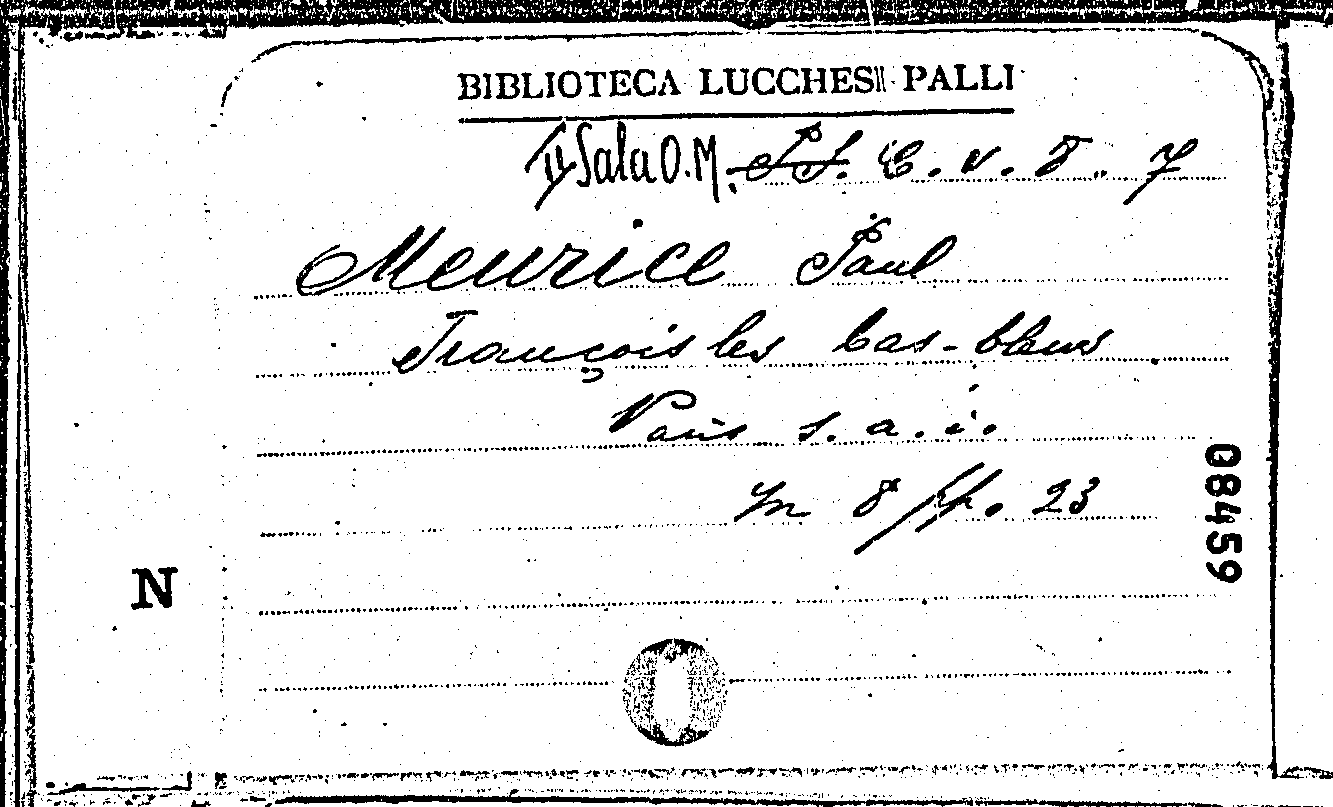 BIBLIOTECA LUCCHESI PALLI
II Sala O.M. C. V. 8. 7
Meurice Paul
François les bas-bleus
Paris s. a. i.
In 8 pp. 23
08459
N